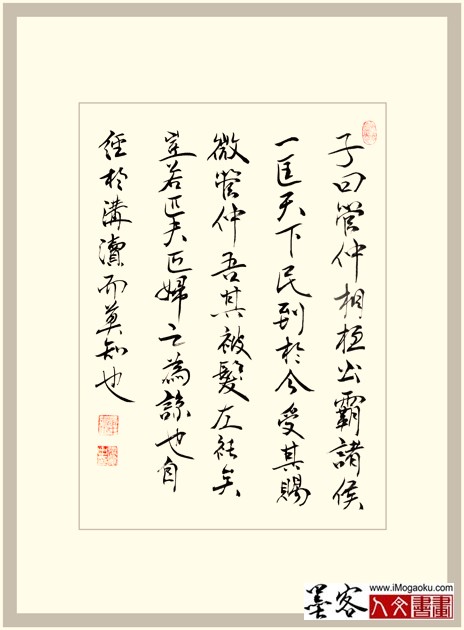 子曰管仲相桓公霸諸侯
一匡天下民到於今受其賜
微管仲吾其被髮左衽矣
豈若匹夫匹婦之為諒也自
經於溝瀆而莫知也
墨客
www.iMogaoku.com
人文書畫